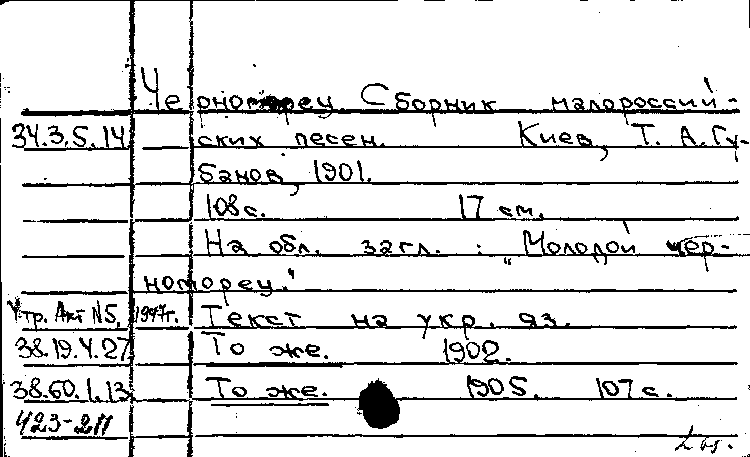 Черноморец. Сборник малороссий-
34.3.5.14 ских песен. Киев, Т. А. Гу-
банов, 1901.
108 с. 17 см.
На обл. загл.: "Молодой чер-
номорец."
Утр. Акт №5, 1997г. Текст на укр. яз.
38.19.4.27 То же. 1902.
38.60.1.13 То же. 1905. 107 с.
423-211